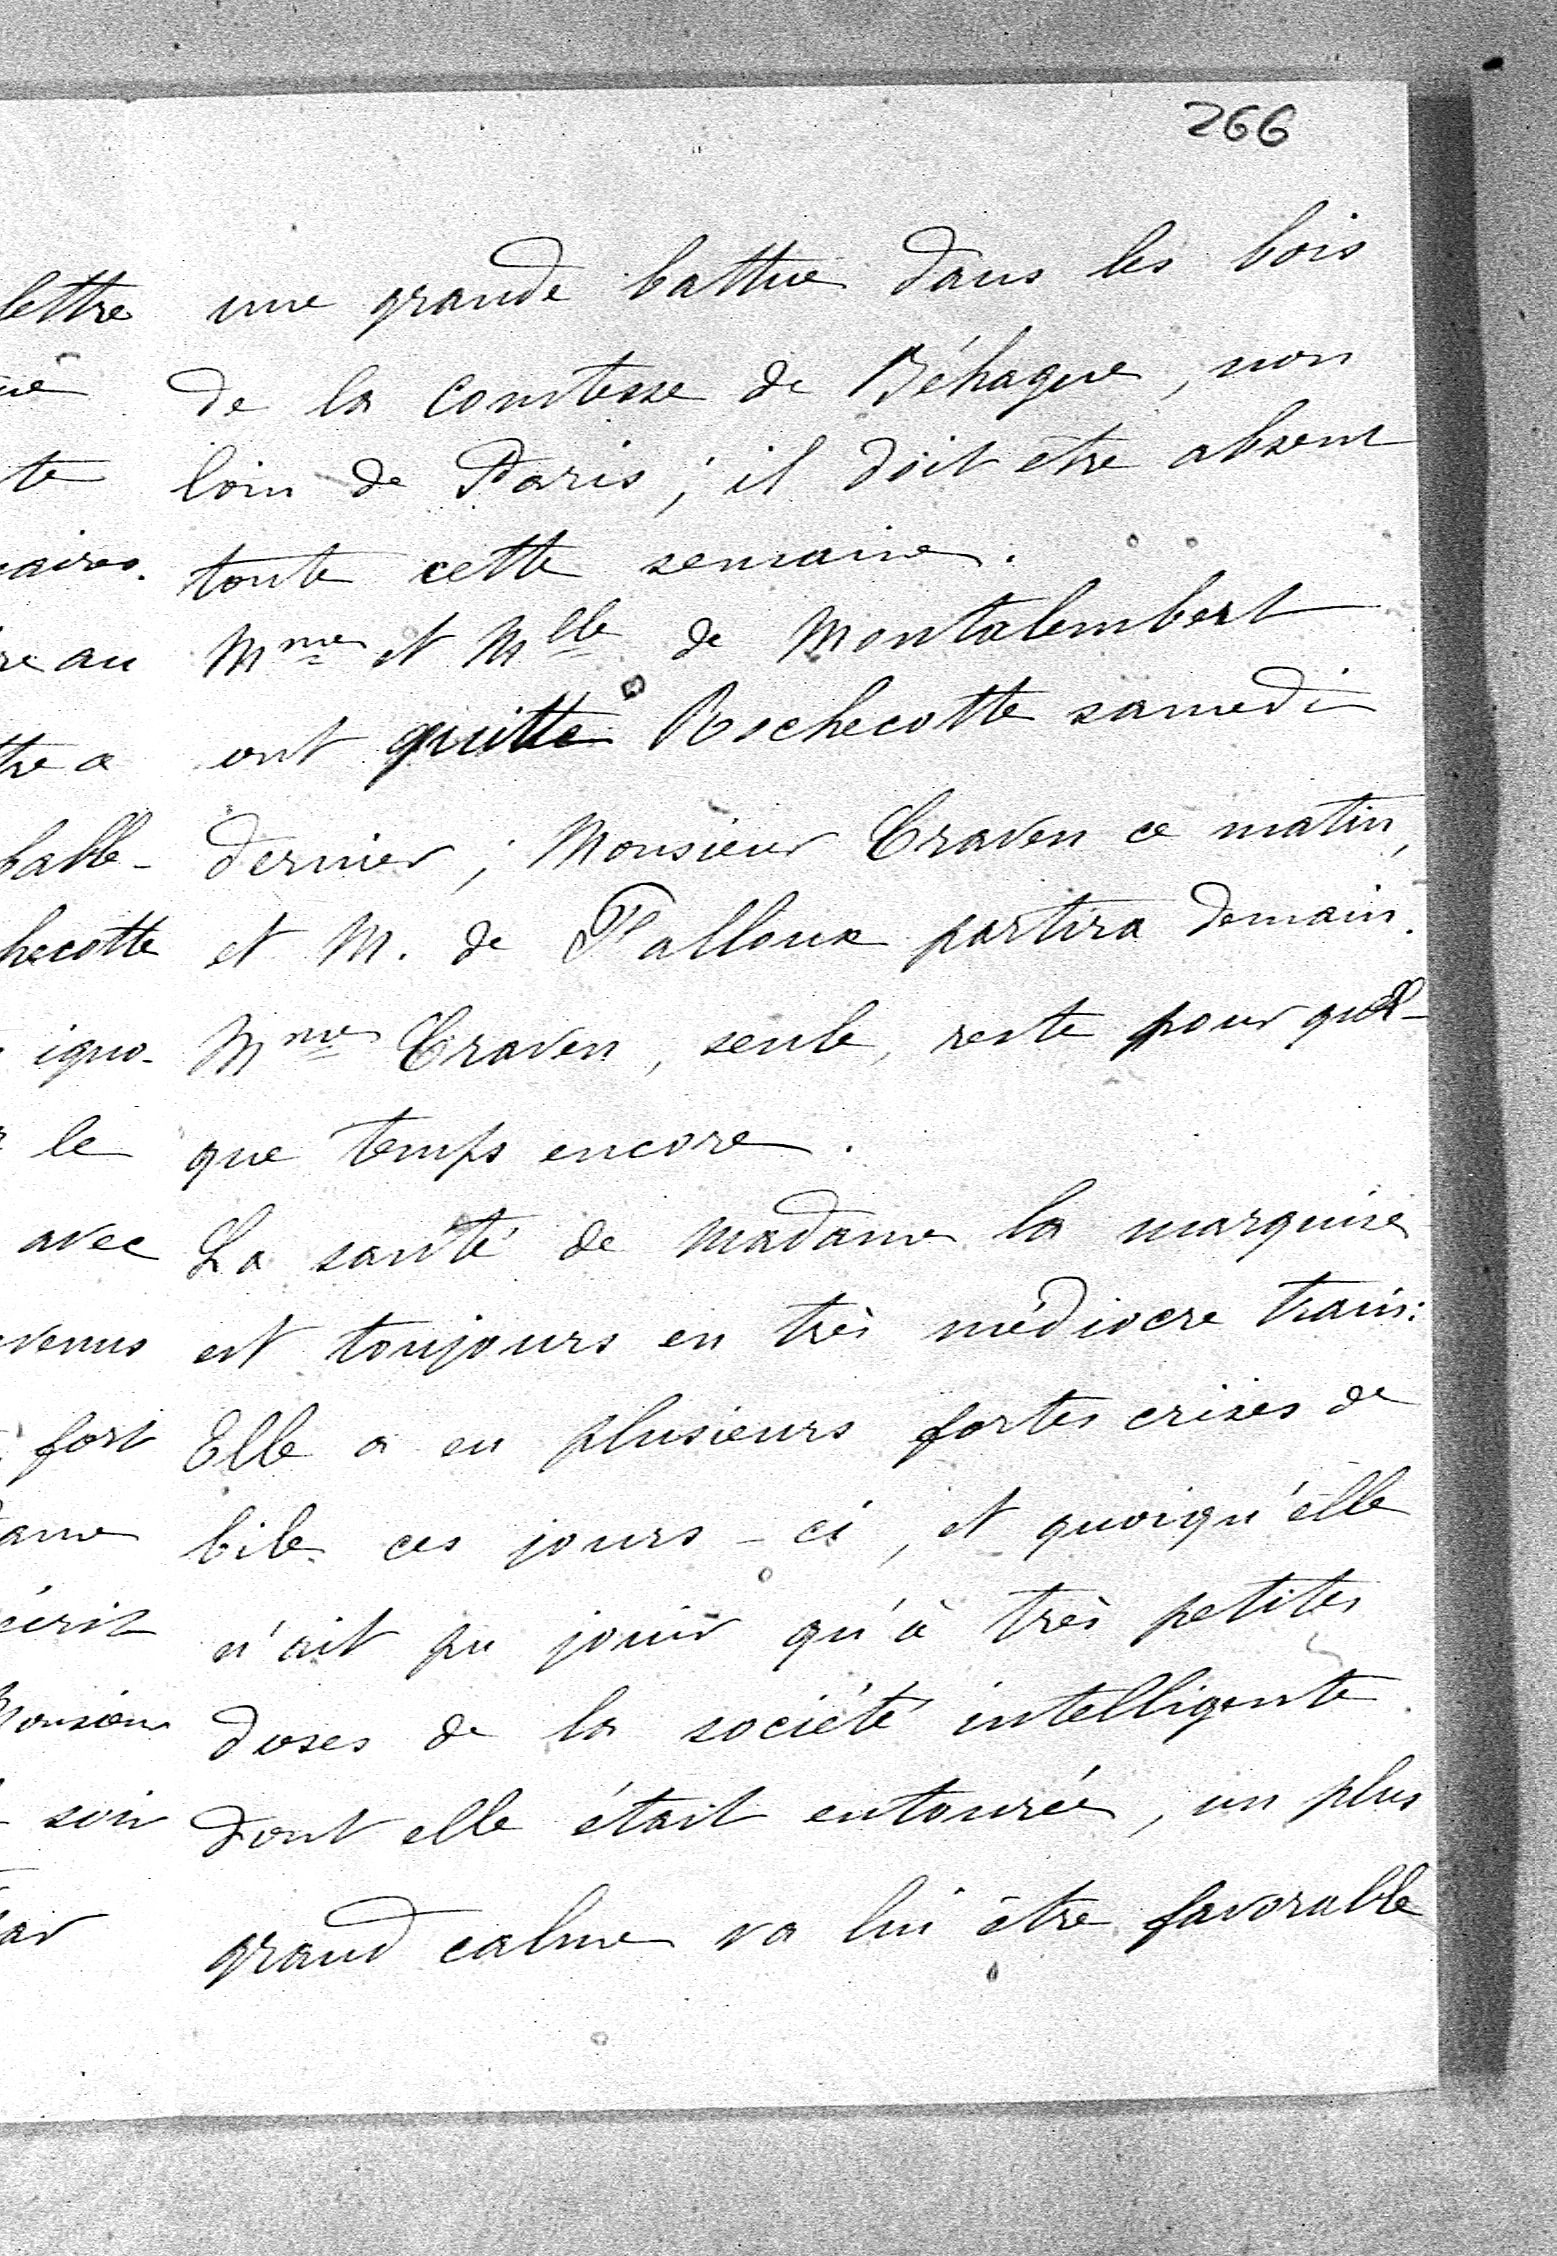 266
une grande battue dans les bois
de la Comtesse de Béhague, non
loin de Paris; il doit être absent
toute cette semaine.
Mme et Mlle de Montalembert
ont quitté Rochecotte samedi
dernier; Monsieur Craven ce matin,
et M. de Falloux partira demain.
Mme Craven, seule, reste pour quel-
que temps encore.
La santé de Madame la marquise
est toujours en très médiocre train:
Elle a eu plusieurs fortes crises de
bile ces jours-ci, et quoiqu'elle
n'ait pu jouir qu'à très petites
doses de la société intelligente
dont elle était entourée, un plus
grand calme va lui être favorable
lettre
te
aires.
re au
tre a
bable-
hecotte
igno-
le
avec
venus
fort
ame
écrit
Monsieur
soin